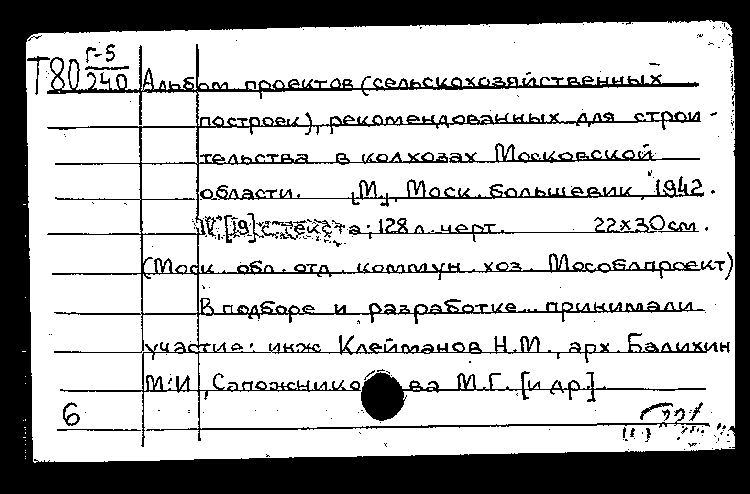 Т80 Г-5/240 Альбом проектов (сельскохозяйственных
построек), рекомендованных для строи-
тельства в колхозах Московской
области. [М], Моск. большевик, 1942.
IV, [19] с. текста; 128 л. черт. 22х30см.
(Моск. обл. отд. коммун. хоз. Мособлпроект)
В подборе и разработке принимали
участие: инж Клейманов Н.М., арх. Балихин
М.И., Сапожникова М.Г. [и др.].
6